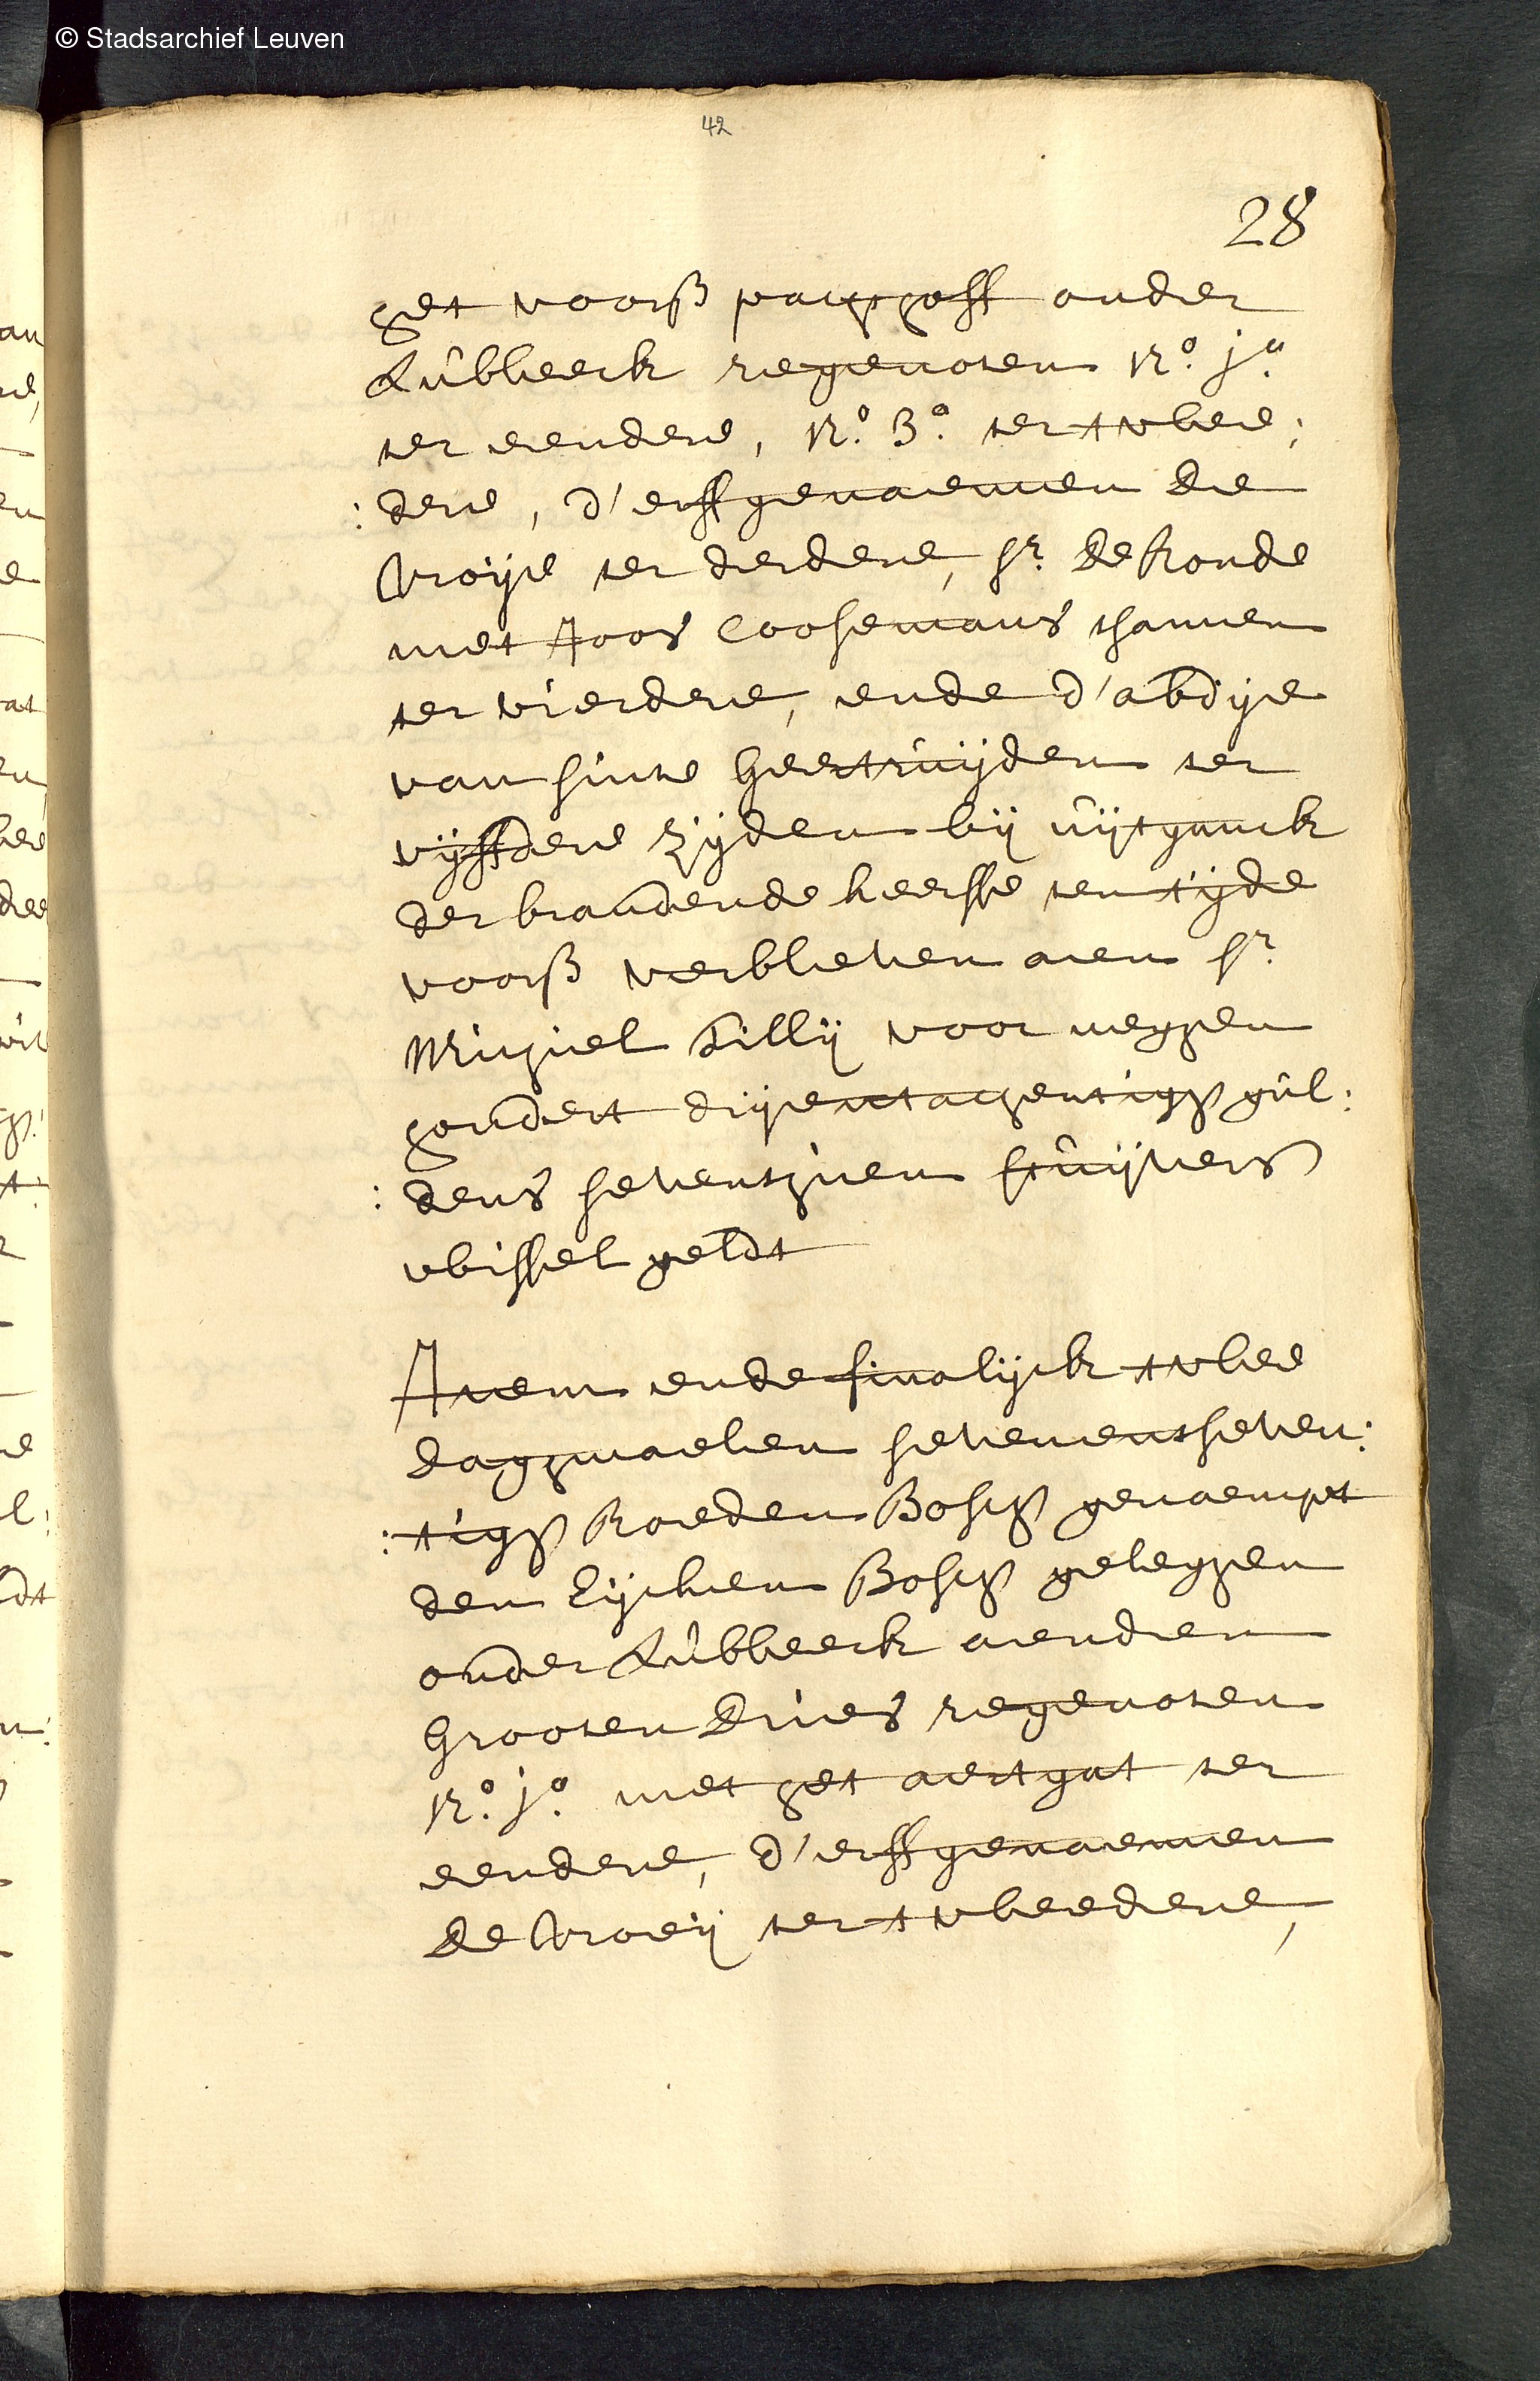 © Stadsarchief Leuven
42
28
het voorß pachthoff onder
Lubbeeck regenoten N.º j.ª
ter eendere, N.º 3.º ter twee:
:dere, d'erffgenaemen De
Vroije ter derdere, Sr. De Ronde
met Joos Coosemans t'samen
ter vierdere, ende d'abdije
van sinte Geertruijden ter
vijffdere zijden bij uijtganck
der brandende keersse ten tijde
voorß verbleven aen Sr.
Michiel Tillij voor neghen
hondert drijentachentigh gul:
:dens seventhien stuijvers
wissel geldt
Item ende finalijck twee
daghmaelen seventseven:
:tigh Roeden Bosch genaempt
den Eijcken Bosch geleghen
onder Lubbeeck aenden
Grooten Dries regenoten
N.º j.º met het aertgat ter
eendere, d'erffgenaemen
De Vroeij ter tweedere,